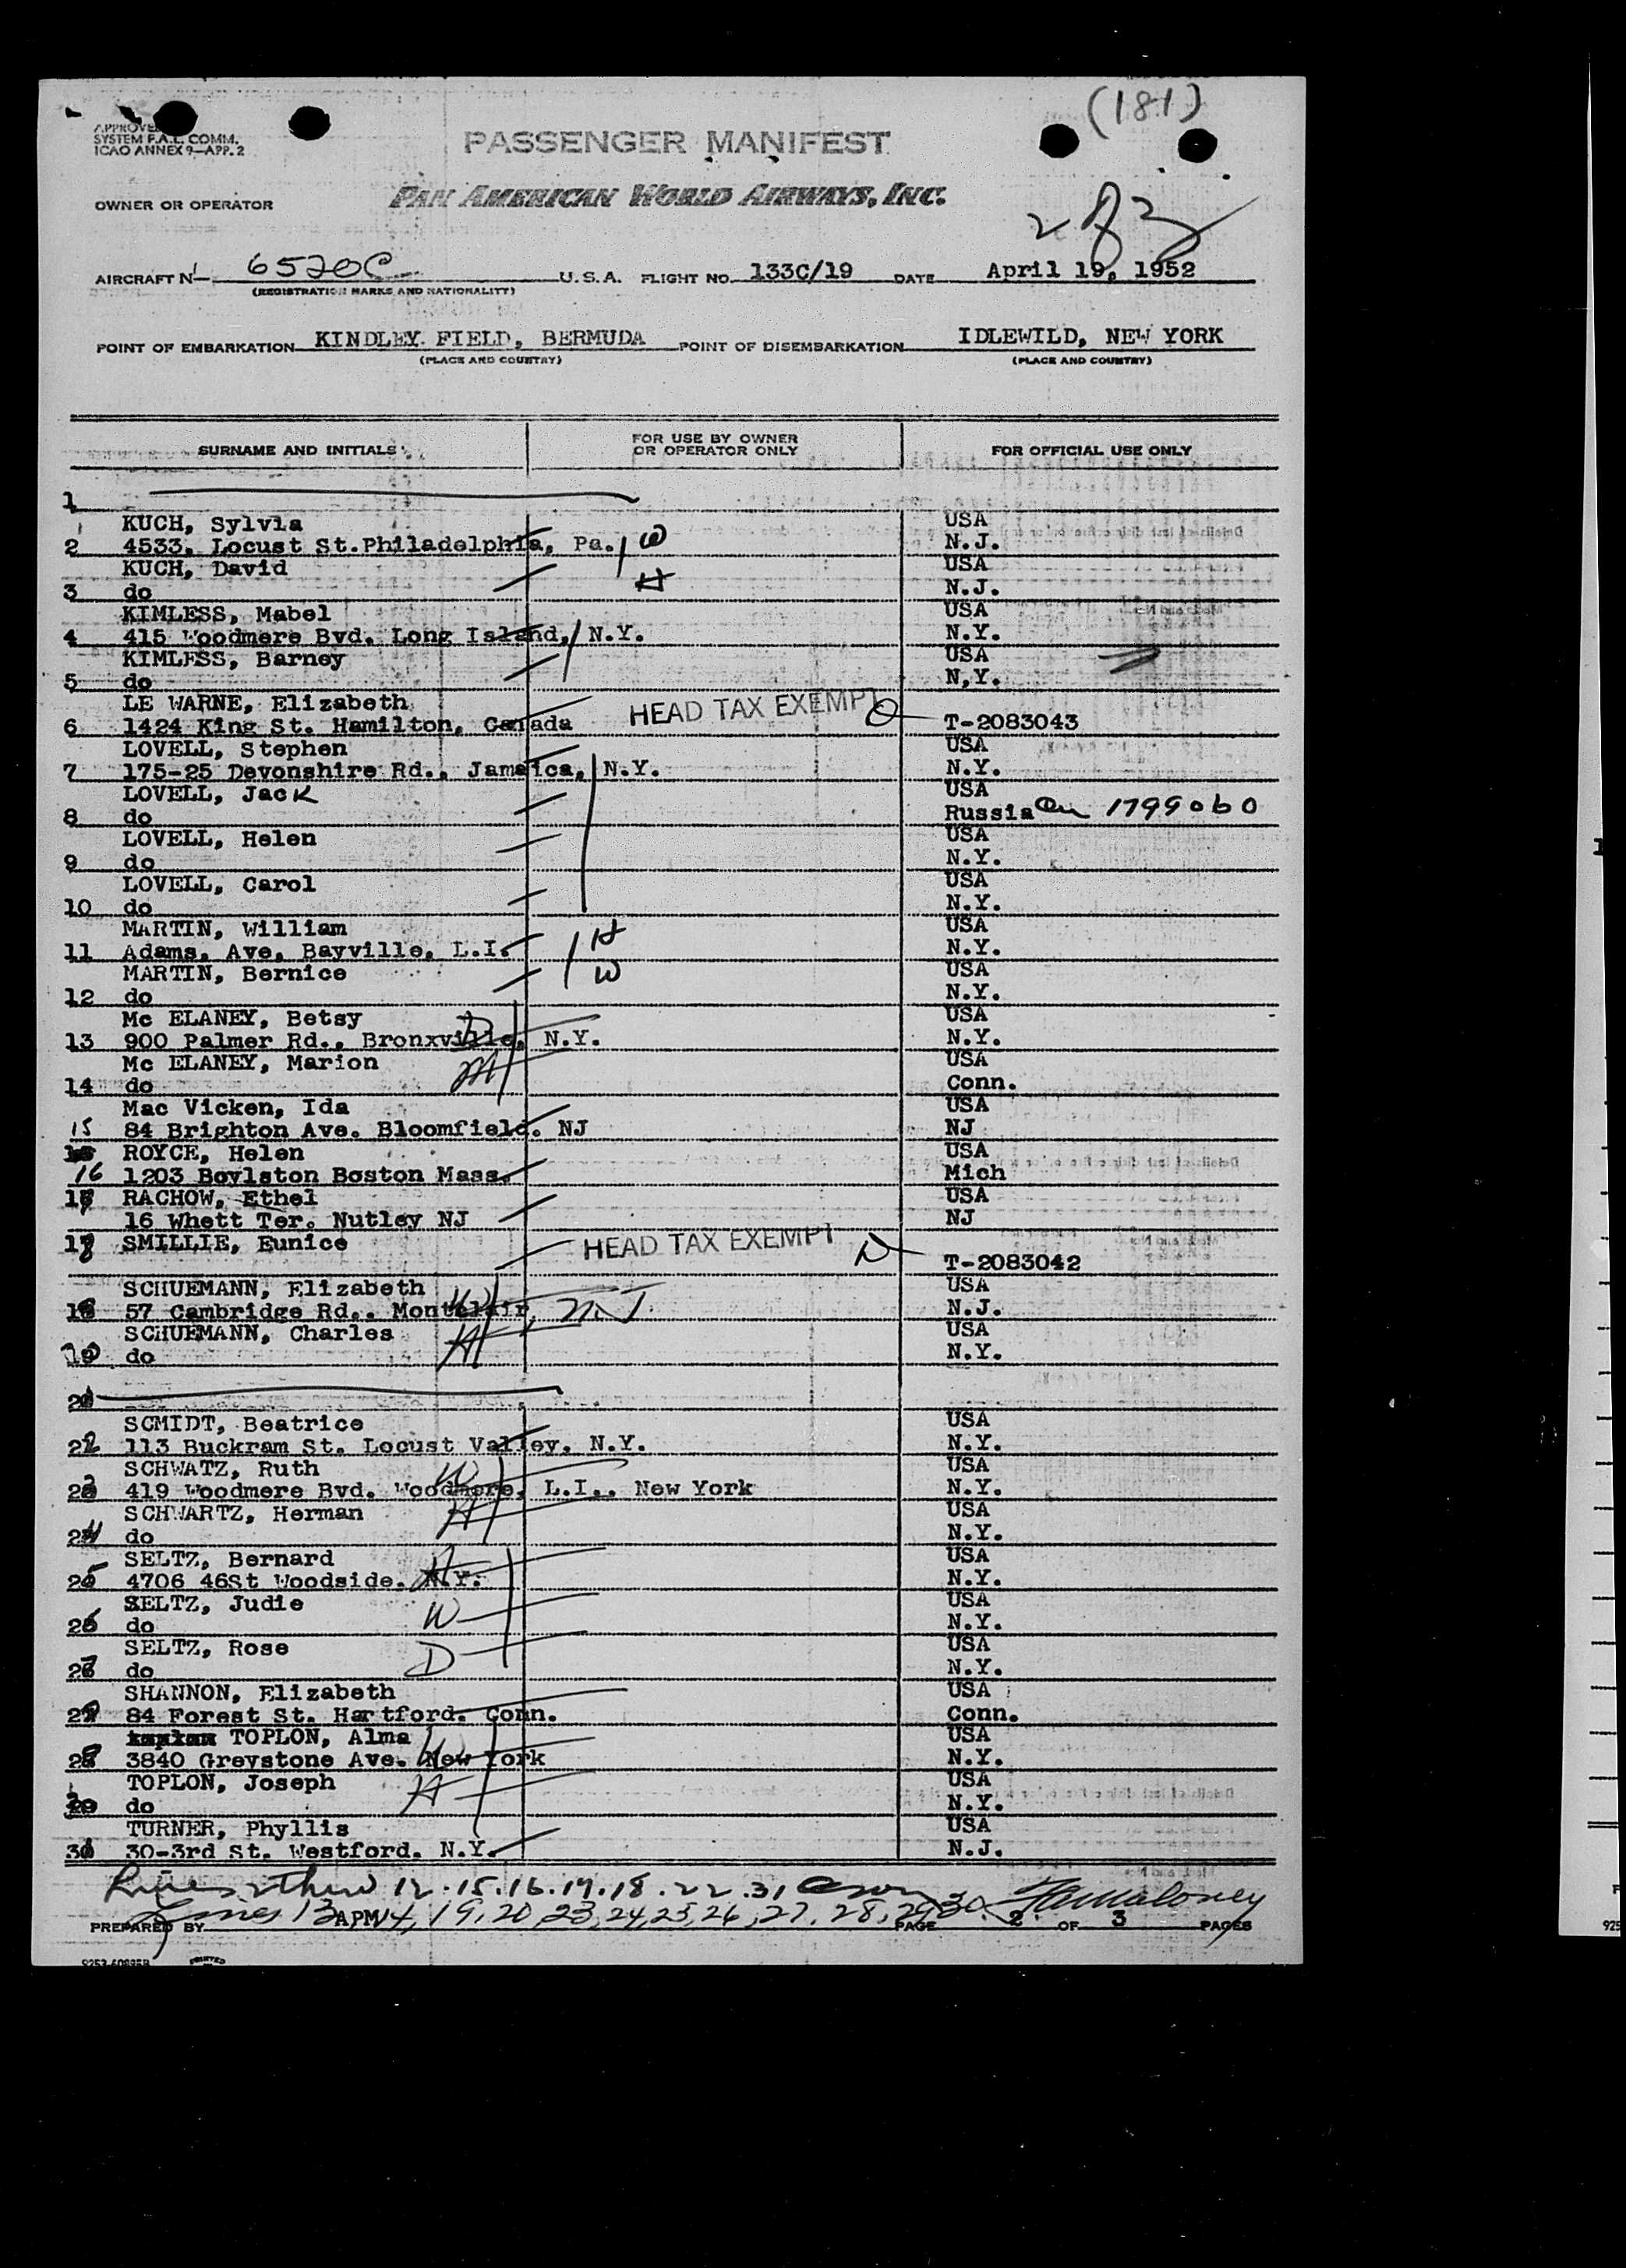 (181)
APPROVED
SYSTEM F.A.L. COMM.
ICAO ANNEX 9—APP. 2
PASSENGER MANIFEST
OWNER OR OPERATOR PAN AMERICAN WORLD AIRWAYS, INC.
AIRCRAFT N 6520C U.S.A. FLIGHT NO. 133C/19 DATE April 19, 1952
(REGISTRATION MARKS AND NATIONALITY)
POINT OF EMBARKATION KINDLEY FIELD, BERMUDA POINT OF DISEMBARKATION IDLEWILD, NEW YORK
(PLACE AND COUNTRY) (PLACE AND COUNTRY)
SURNAME AND INITIALS FOR USE BY OWNER OR OPERATOR ONLY FOR OFFICIAL USE ONLY
1
KUCH, Sylvia USA
2 4533, Locust St.Philadelphia, Pa. W N.J.
KUCH, David USA
3 do H N.J.
KIMLESS, Mabel USA
4 415 Woodmere Bvd. Long Island, N.Y. N.Y.
KIMLESS, Barney USA
5 do N,Y.
LE WARNE, Elizabeth HEAD TAX EXEMPT
6 1424 King St. Hamilton, Canada T-2083043
LOVELL, Stephen USA
7 175-25 Devonshire Rd., Jamaica, N.Y. N.Y.
LOVELL, Jack USA
8 do Russia 1799060
LOVELL, Helen USA
9 do N.Y.
LOVELL, Carol USA
10 do N.Y.
MARTIN, William H USA
11 Adams, Ave, Bayville, L.I. N.Y.
MARTIN, Bernice W USA
12 do N.Y.
Mc ELANEY, Betsy D USA
13 900 Palmer Rd., Bronxville, N.Y. N.Y.
Mc ELANEY, Marion M USA
14 do Conn.
Mac Vicken, Ida USA
15 84 Brighton Ave. Bloomfield. NJ NJ
ROYCE, Helen USA
16 1203 Boylston Boston Mass. Mich
17 RACHOW, Ethel USA
16 Whett Ter. Nutley NJ NJ
18 SMILLIE, Eunice HEAD TAX EXEMPT
T-2083042
SCHUEMANN, Elizabeth W USA
57 Cambridge Rd., Montclair, NJ. N.J.
SCHUEMANN, Charles H USA
20 do N.Y.
21
SCMIDT, Beatrice USA
22 113 Buckram St. Locust Valley, N.Y. N.Y.
SCHWATZ, Ruth W USA
23 419 Woodmere Bvd. Woodmere, L.I., New York N.Y.
SCHWARTZ, Herman H USA
24 do N.Y.
SELTZ, Bernard H USA
25 4706 46St Woodside. N.Y. N.Y.
SELTZ, Judie W USA
26 do N.Y.
SELTZ, Rose D USA
27 do N.Y.
SHANNON, Elizabeth USA
84 Forest St. Hartford. Conn. Conn.
TOPLON, Alma W USA
3840 Greystone Ave. New York N.Y.
TOPLON, Joseph H USA
do N.Y.
TURNER, Phyllis USA
31 30-3rd St. Westford. N.Y. N.J.
Lines 2 thru 12.15.16.17.18.22.31
Lines 13 APM 14, 19, 20, 23, 24, 25, 26, 27, 28, 29, 30.
PREPARED BY PAGE 2 OF 3 PAGES